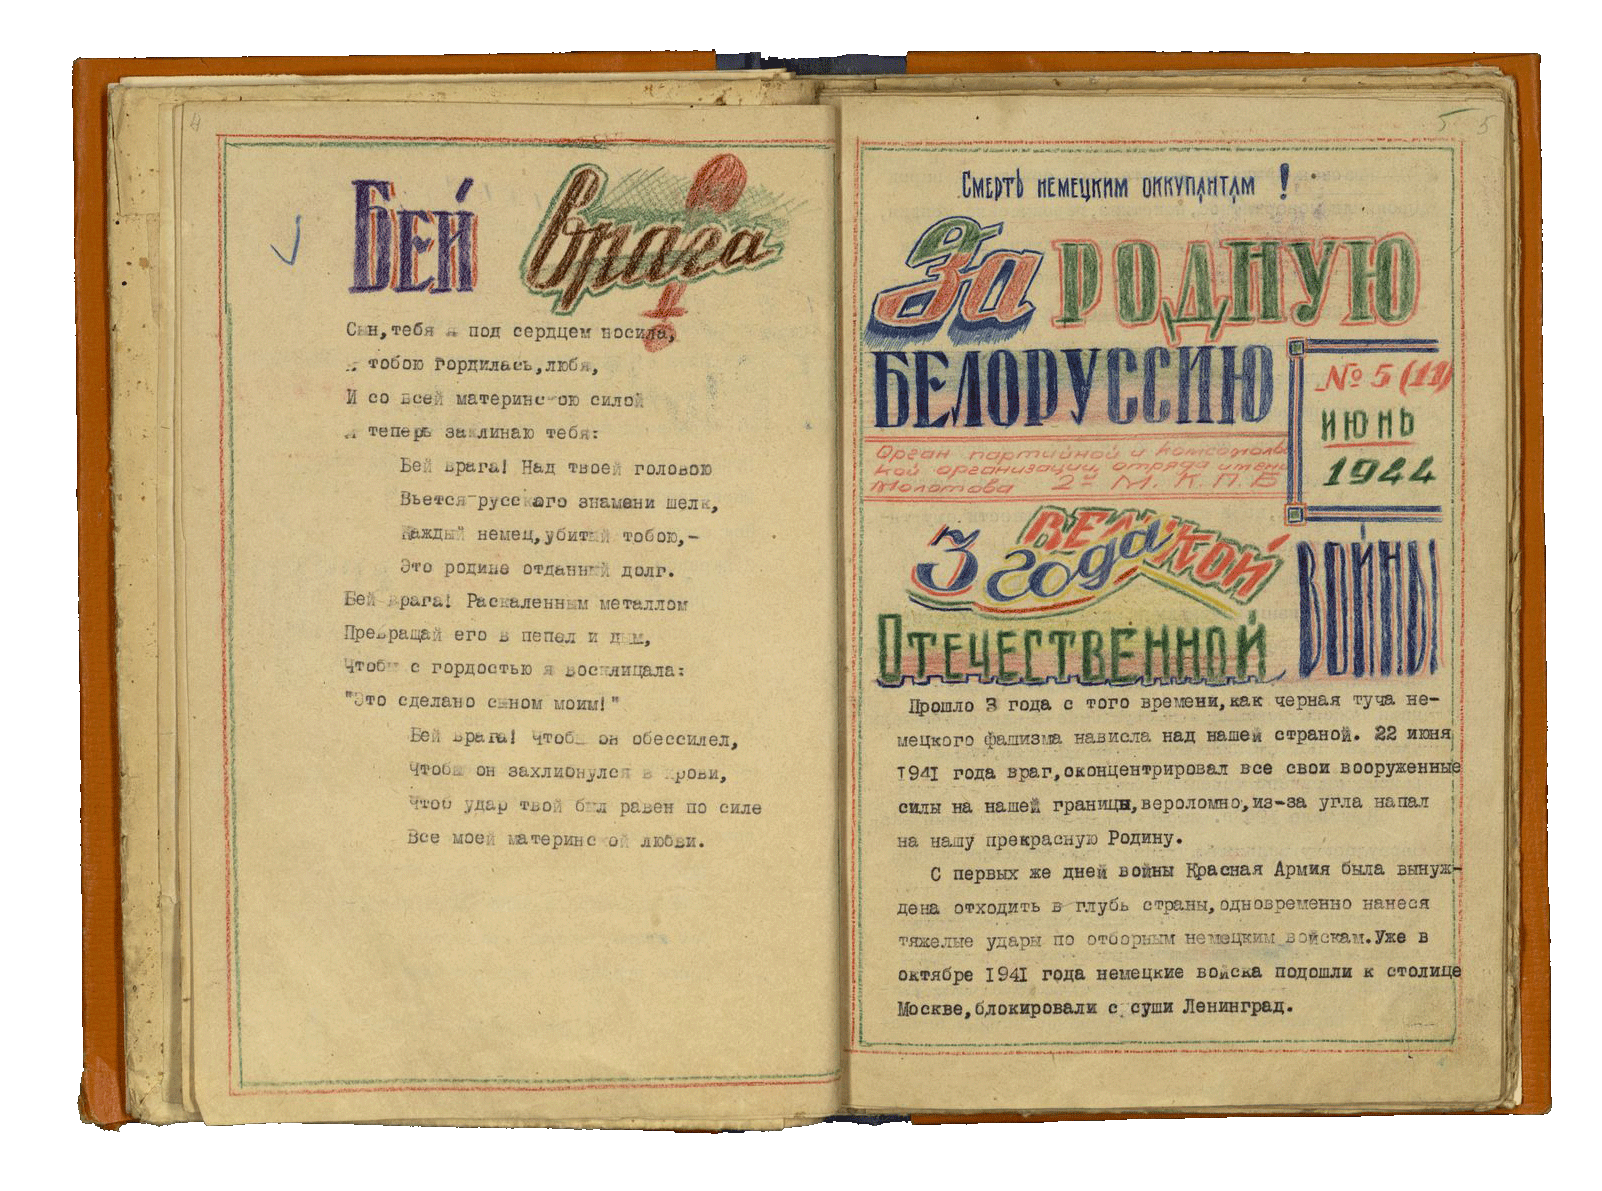 4
Бей врага!
Сын, тебя я под сердцем носила,
Я тобою гордилась, любя,
И со всей материнскою силой
Я теперь заклинаю тебя:
Бей врага! Над твоей головою
Вьется русского знамени шелк,
Каждый немец, убитый тобою,-
Это родине отданный долг.
Бей врага! Раскаленным металлом
Превращай его в пепел и дым,
Чтобы с гордостью я восклицала:
"Это сделано сыном моим!"
Бей врага! Чтобы он обессилел,
Чтобы он захлионулся в крови,
Чтоб удар твой был равен по силе
Все моей материнской любви.
5 5
Смерть немецким оккупантам !
За РОДНУЮ
БЕЛОРУССИЮ
№ 5 (11)
ИЮНЬ
1944
Орган партийной и комсомоль
кой организации отряда имени
Молотова 2й М. К. П. Б
3 года ВЕЛИКОЙ
ОТЕЧЕСТВЕННОЙ ВОЙНЫ
Прошло 3 года с того времени, как черная туча не-
мецкого фашизма нависла над нашей страной. 22 июня
1941 года враг, оконцентрировал все свои вооруженные
силы на нашей границы, вероломно, из-за угла напал
на нашу прекрасную Родину.
С первых же дней войны Красная Армия была вынуж-
дена отходить в глубь страны, одновременно нанеся
тяжелые удары по отборным немецким войскам. Уже в
октябре 1941 года немецкие войска подошли к столице
Москве, блокировали с суши Ленинград.